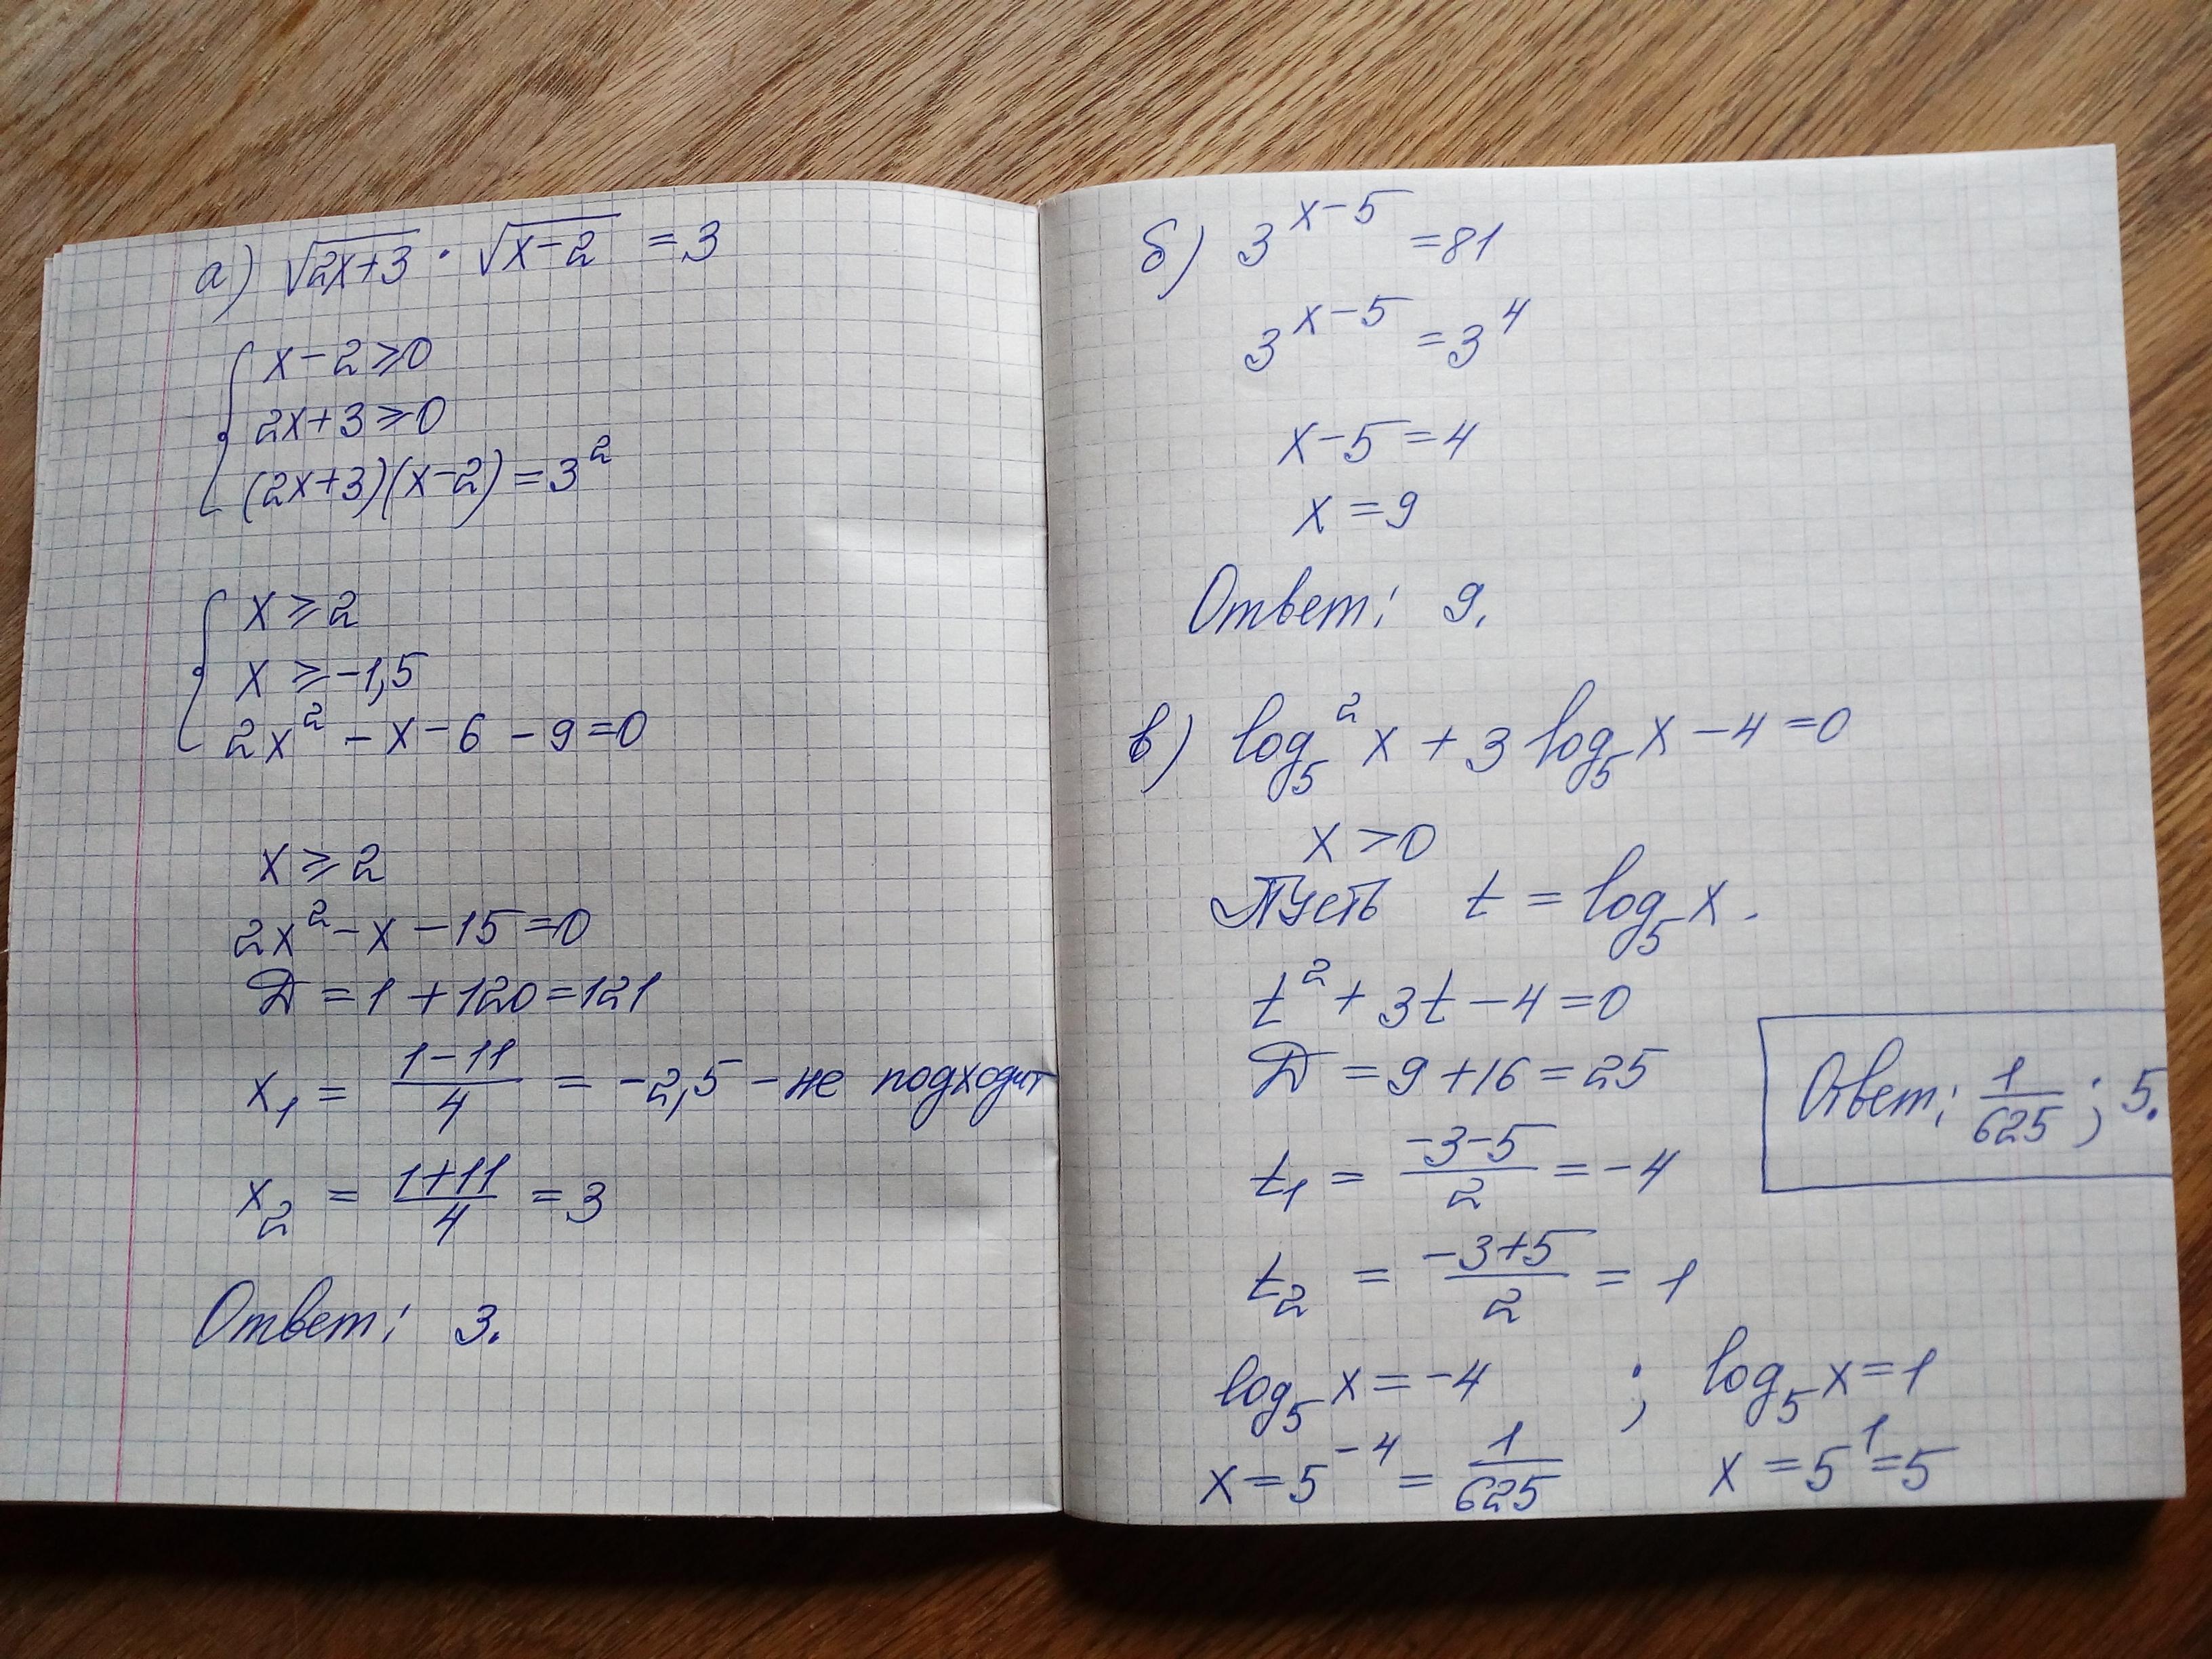 а) √(2x+3) · √(x-2) = 3
x-2≥0
2x+3≥0
(2x+3)(x-2)=3²
x≥2
x≥-1,5
2x²-x-6-9=0
x≥2
2x²-x-15=0
D=1+120=121
x₁ = (1-11)/4 = -2,5 - не подходит
x₂ = (1+11)/4 = 3
Ответ: 3.
б) 3^(x-5) = 81
3^(x-5) = 3⁴
x-5=4
x=9
Ответ: 9.
в) log₅²x + 3log₅x - 4 = 0
x>0
Пусть t = log₅x.
t²+3t-4=0
D=9+16=25
t₁ = (-3-5)/2 = -4
t₂ = (-3+5)/2 = 1
log₅x=-4 ; log₅x=1
x=5⁻⁴=1/625 x=5¹=5
Ответ: 1/625; 5.